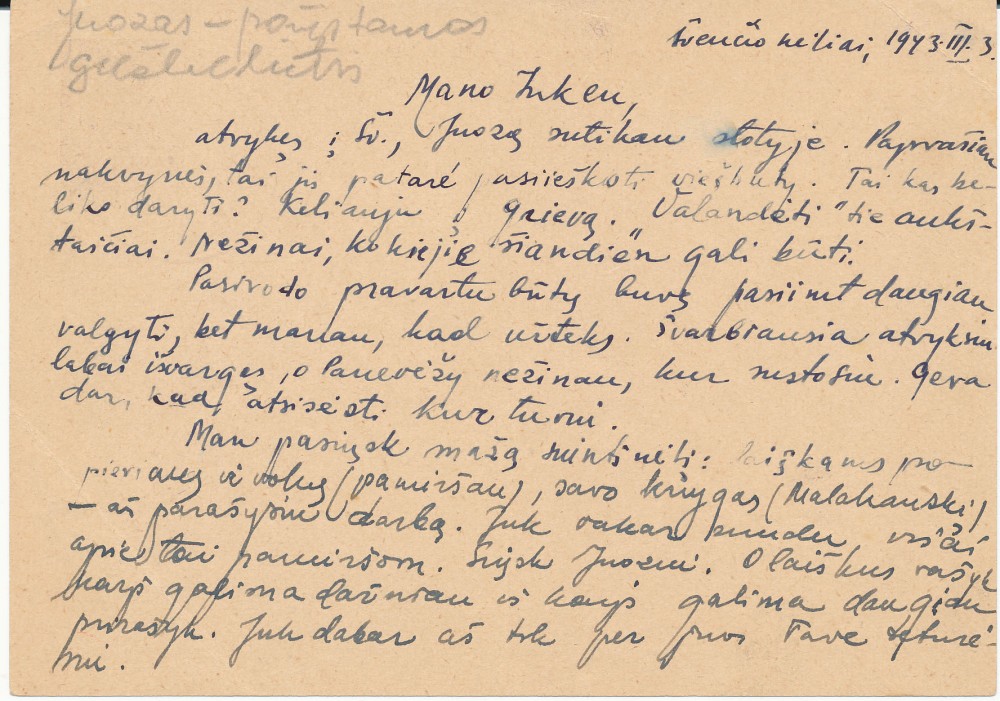 Juozas – pažįstamas
geležkelietis
Švenčionėliai, 1943.III.3.
Mano
atvykęs į Šv., Juozą sutikau stotyje. Paprašiau
nakvynės, tai jis patarė pasiieškoti viešbuty. Tai kas be-
liko daryti? Keliauju į Grievą. Valandėti "tie aukš-
taičiai. Nežinai, kokiejie šiandien gali būti.
Pasirodo pravartu būtų buvę pasiimt daugiau
valgyti, bet manau, kad užteks. Svarbiausia atvyksiu
labai išvargęs, o Panevėžy nežinau, kur sustosiu. Gera
dar, kad atsisėsti kur turiu.
Man pasiųsk mažą siuntinėlį: laiškams po-
pieriaus ir vokų (pamiršau), savo knygas (Malahauski)
– aš parašysiu darbą. Juk vakar
apie tai pamiršom. Siųsk Juozui. O laiškus rašyk
kaip galima dažniau ir kaip galima daugiau
prirašyk. Juk dabar aš tik per juos Tave teturė-
siu.